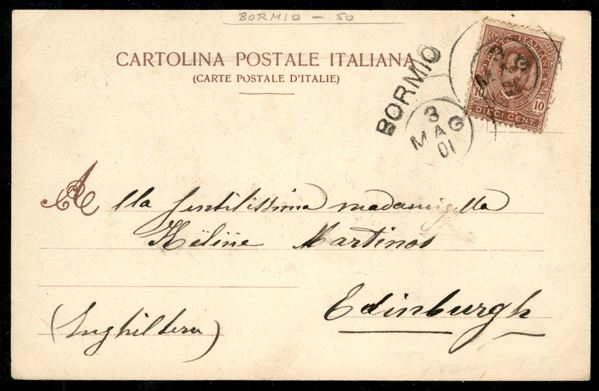 BORMIO - 50
CARTOLINA POSTALE ITALIANA
(CARTE POSTALE D'ITALIE)
BORMIO
3
MAG
01
10
DIECI CENT.
Alla gentilissima madamigella
Martinos
Edinburgh
(Inghilterra)